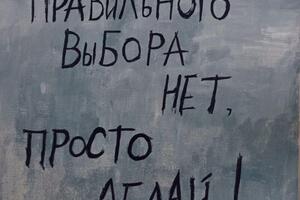 ПРАВИЛЬНОГО
ВЫБОРА
НЕТ,
ПРОСТО
ДЕЛАЙ!